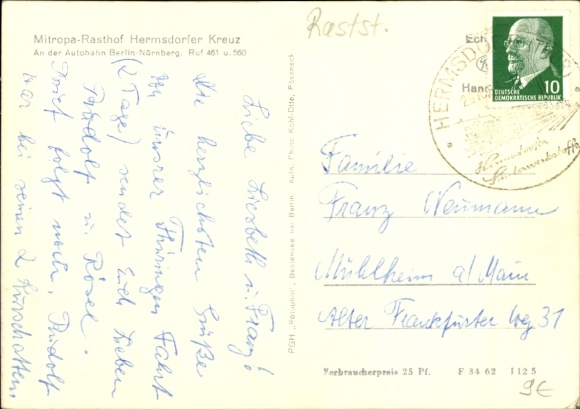 Mitropa-Rasthof Hermsdorfer Kreuz
An der Autobahn Berlin-Nürnberg, Ruf 461 u. 560
Rastst.
Liebe Liesbeth u. Franz!
Die herzlichsten Grüße
von unsrer Thüringen Fahrt
(2 Tage) sendet Euch Lieben
Rudolf u. Rösel.
Brief folgt noch, Rudolf
war bei seinen 2
PGH „Rotophot", Bestensee bei Berlin, Auto. Photo: Kohl-Otte, Pössneck
Ech
Han
DEUTSCHE
DEMOKRATISCHE REPUBLIK
10
HERMSDO
Hermsdorfer
Familie
Franz Neumann
Mühlheim a/Main
Alter Frankfurter Weg 31
Verbraucherpreis 25 Pf. F 34 62 I 12 5
9€